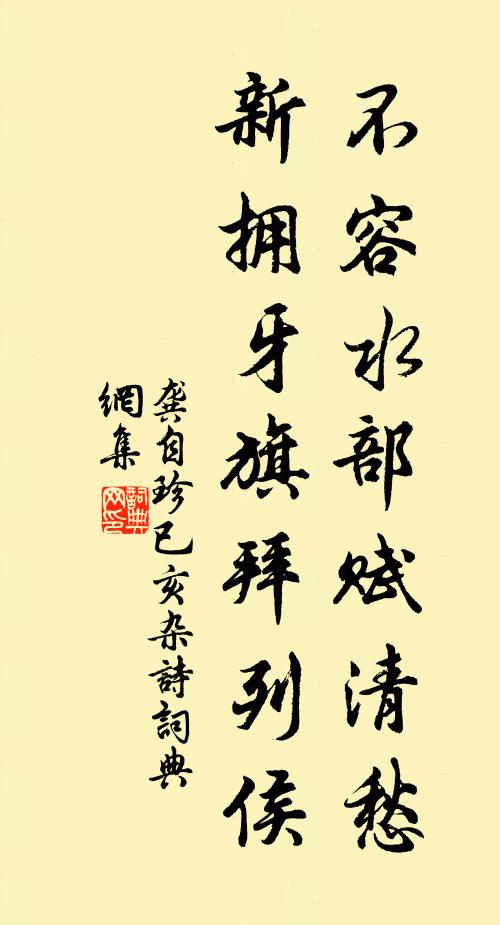 不容水部赋清愁
新拥牙旗拜列侯
龚自珍己亥杂詩詞典
網集
詞典
网印